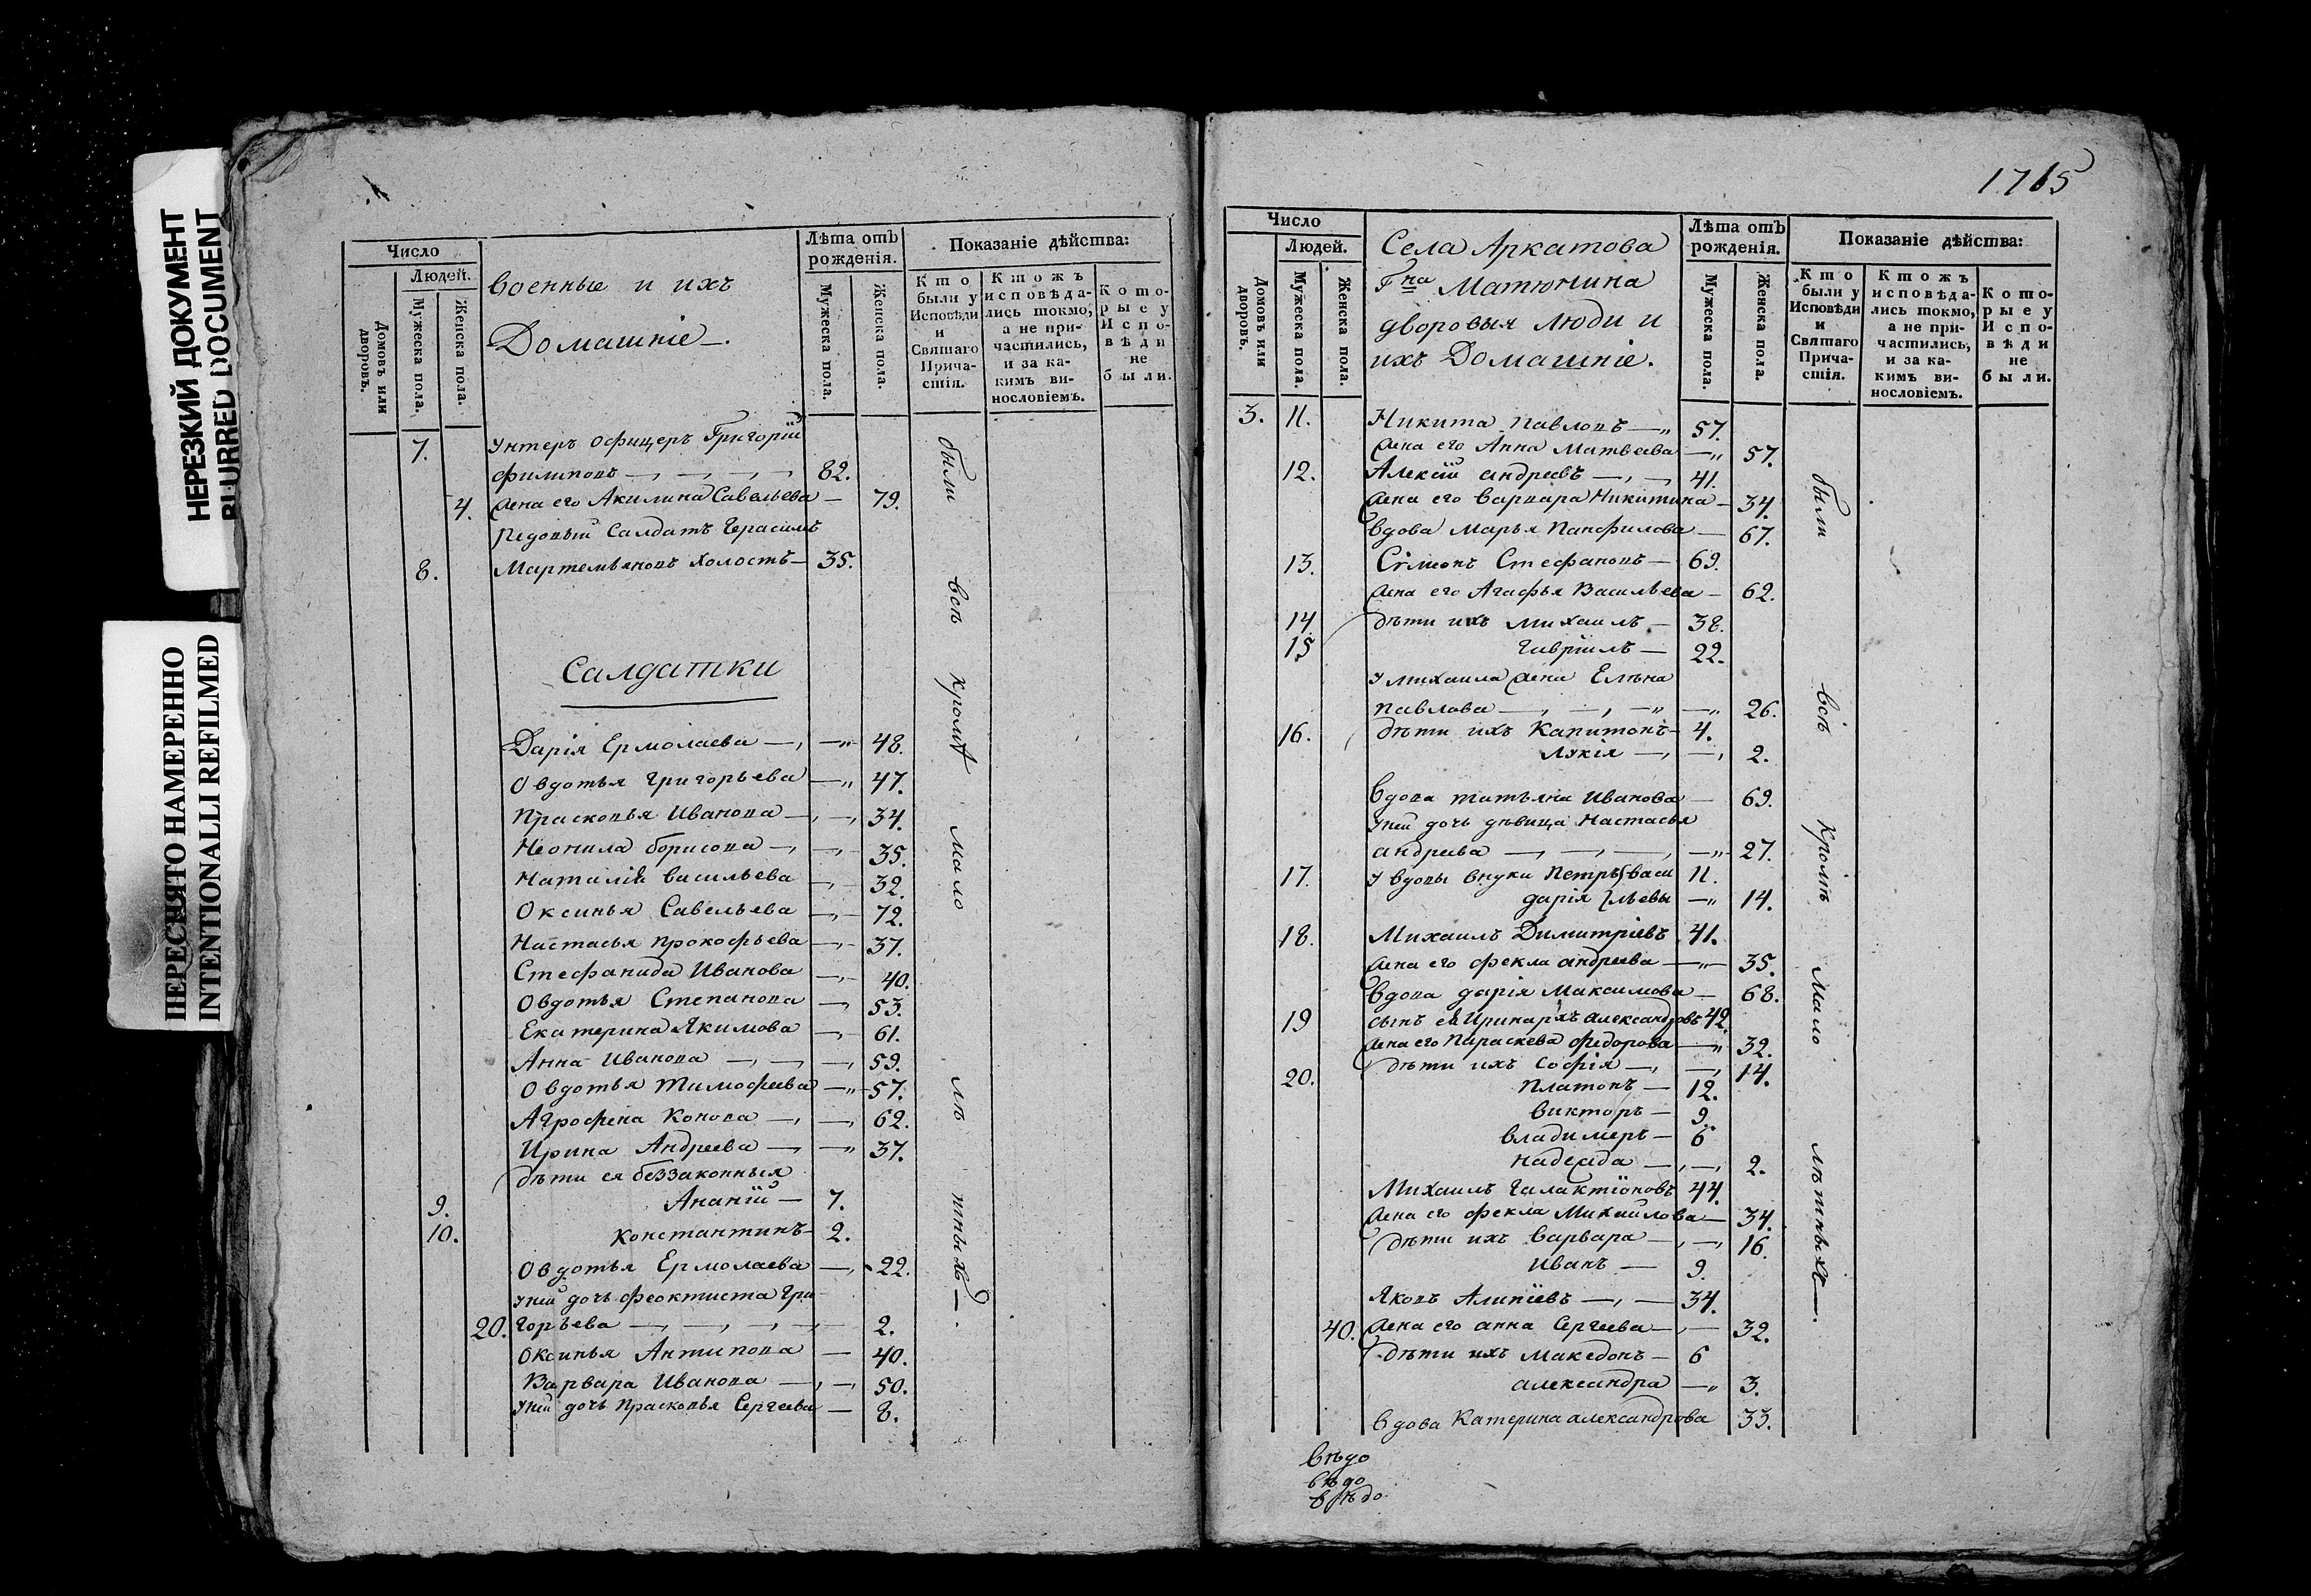 НЕРЕЗКИЙ ДОКУМЕНТ
BLURRED DOCUMENT
ПЕРЕСНЯТО НАМЕРЕННО
INTENTIONALLI REFILMED
Число
Людей.
Домовъ или дворовъ.
Мужеска пола.
Женска пола.
военные и ихъ
Домашніе.
Лѣта отъ рожденія.
Мужеска пола.
Женска пола.
Показаніе дѣйства:
Кто были у Исповѣди и Святаго Причастія.
Ктожъ исповѣдались токмо, а не причастились, и за какимъ винословіемъ.
Которые у Исповѣди не были.
7. Унтеръ офицеръ Григорій
филиповъ 82.
4. жена его Акилина Савельева 79.
рядовый Салдатъ Герасимъ
8. Мартемьяновъ холостъ 35.
Салдатки
Дарія Ермолаева 48.
Овдотья Григорьева 47.
Прасковья Иванова 34.
Неонила борисова 35.
Наталія васильева 32.
Оксинья Савельева 72.
Настасья прокофьева 37.
Стефанида Иванова 40.
Овдотья Степанова 53.
Екатерина Якимова 61.
Анна Иванова 59.
Овдотья Тимофеева 57.
Агрофена Конова 62.
Ирина Андреева 37.
дѣти ея беззаконныя
9. Ананій 7.
10. Константинъ 2.
Овдотья Ермолаева 22.
у ней дочь феоктиста Гри
20. горьева 2.
Оксинья Антипова 40.
Варвара Иванова 50.
у ней дочь Прасковья Сергеева 8.
были всѣ кромѣ мало лѣтныхъ
1715
Число
Людей.
Домовъ или дворовъ.
Мужеска пола.
Женска пола.
Села Аркатова
Гна Матюнина
дворовыя люди и
ихъ Домашніе.
Лѣта отъ рожденія.
Мужеска пола.
Женска пола.
Показаніе дѣйства:
Кто были у Исповѣди и Святаго Причастія.
Ктожъ исповѣдались токмо, а не причастились, и за какимъ винословіемъ.
Которые у Исповѣди не были.
3. 11. Никита Павловъ 57.
жена его Анна Матвеева 57.
12. Алексій андреевъ 41.
жена его варвара Никитина 34.
вдова Марья Панфилова 67.
13. Сѵмеонъ Стефановъ 69.
жена его Агафья Васильева 62.
14. дѣти ихъ михаилъ 38.
15 гавріилъ 22.
у михаила жена Елѣна
павлова 26.
16. дѣти ихъ Капитонъ 4.
лукія 2.
вдова татьяна Иванова 69.
у ней дочь дѣвица Настасья
андреева 27.
17. у вдовы внуки Петръ васи 11.
дарія льевы 14.
18. Михаилъ Димитріевъ 41.
жена его фекла андреева 35.
вдова дарія Максимова 68.
19 сынъ ея Иринархъ александровъ 42
жена его Параскева федорова 32.
дѣти ихъ Софія 14.
20. Платонъ 12.
викторъ 9.
владимеръ 6
надежда 2.
Михаилъ Галактіоновъ 44.
жена его фекла Михаилова 34.
дѣти ихъ варвара 16.
Иванъ 9.
Яковъ Алипіевъ 34.
40. жена его анна Сергеева 32.
дѣти ихъ Македонъ 6
александра 3.
вдова Катерина александрова 33.
были всѣ кромѣ мало лѣтныхъ
вѣдо
вѣдо
вѣдо